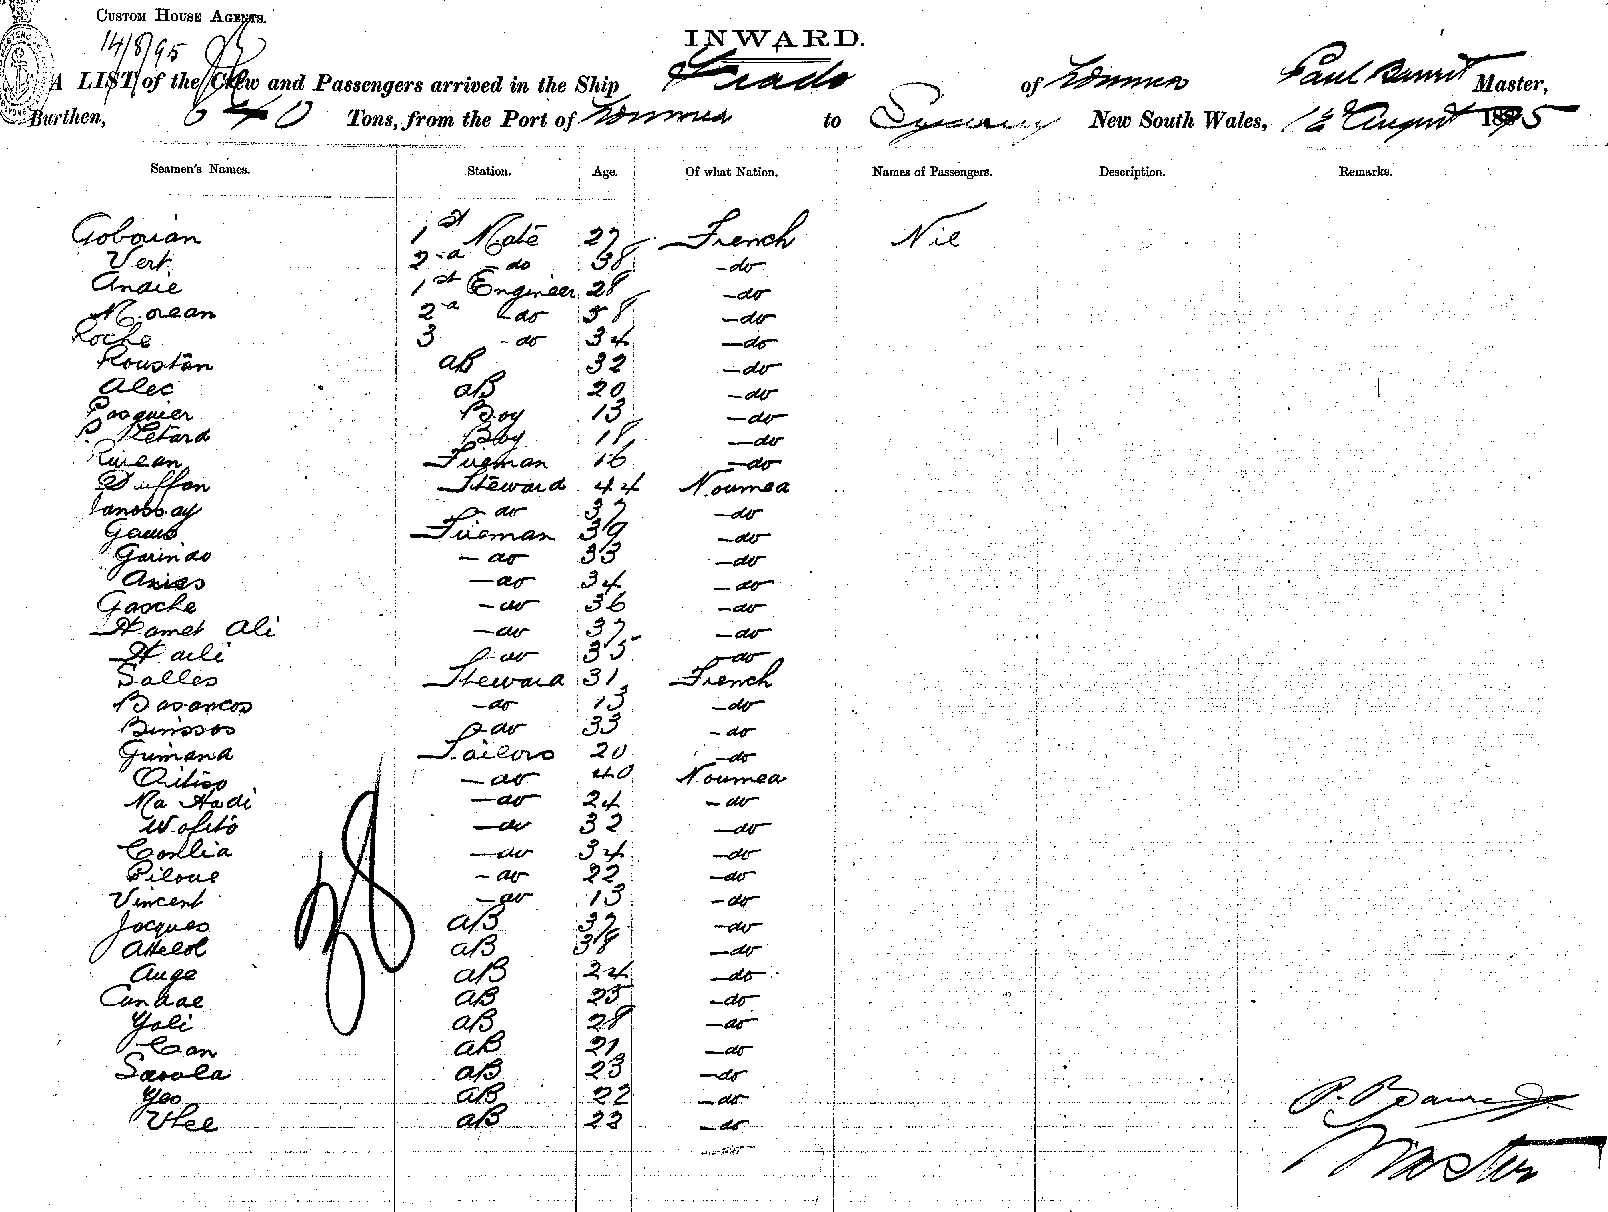 CUSTOM HOUSE AGENTS.
14/8/95
INWARD.
A LIST of the Crew and Passengers arrived in the Ship of Noumea Paul Master,
Burthen, 640 Tons, from the Port of Noumea to Sydney New South Wales, August 1895
Seamen's Names. Station. Age. Of what Nation. Names of Passengers. Description. Remarks.
1st Mate 27 French Nil
Vert 2nd do 38 do
1st Engineer 28 do
Morean 2nd do 38 do
Roche 3 do 34 do
Roustan AB 32 do
Alec AB 20 do
Pasquier Boy 13 do
P. Boy 18 do
Fireman 16 do
Buffon Steward 44 Noumea
do 37 do
Fireman 39 do
Garindo do 33 do
Arias do 34 do
Gasche do 36 do
Hamet Ali do 37 do
Haili do 35 do
Salles Steward 31 French
do 13 do
Binssos do 33 do
Gimana Sailors 20 do
do 40 Noumea
Ma Hadi do 24 do
Wofito do 32 do
Conlia do 34 do
Piloue do 22 do
Vincent do 13 do
Jacques AB 37 do
AB 38 do
Auge AB 24 do
AB 25 do
Yali AB 28 do
Can AB 21 do
AB 23 do
Yeo AB 22 do
Vhee AB 22 do
Master